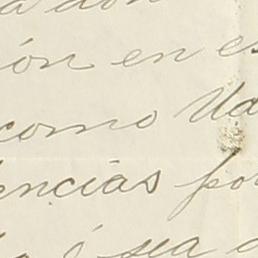 ión en es
como Ud
encias por
é sea a